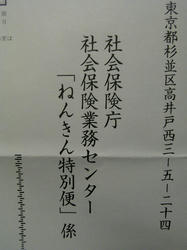 東京都杉並区高井戸西三-五-二十四
社会保険庁
社会保険業務センター
「ねんきん特別便」係